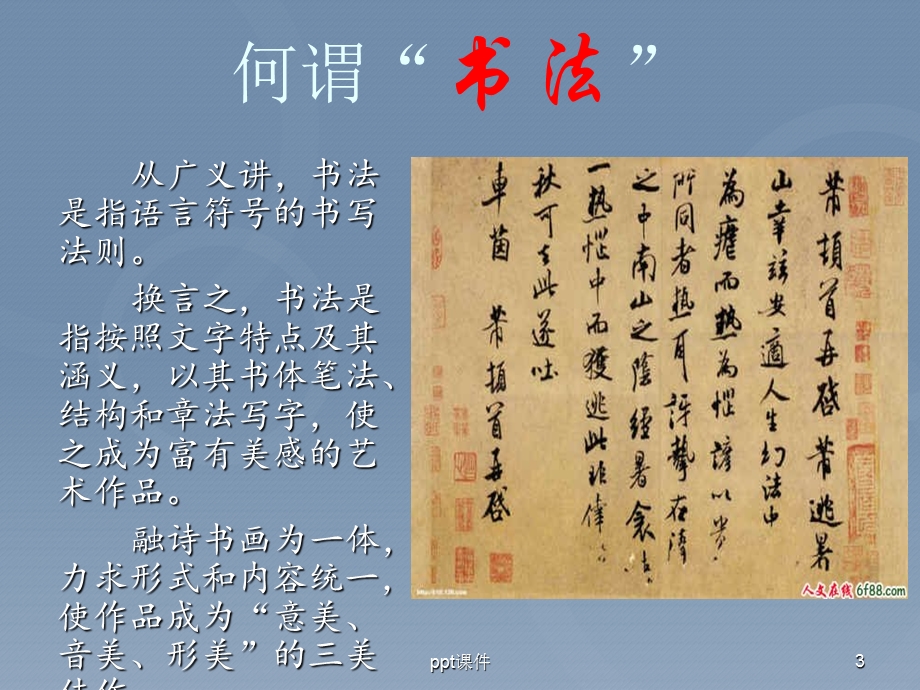 何谓“书法”
从广义讲，书法
是指语言符号的书写
法则。
换言之，书法是
指按照文字特点及其
涵义，以其书体笔法、
结构和章法写字，使
之成为富有美感的艺
术作品。
融诗书画为一体，
力求形式和内容统一，
使作品成为“意美、
音美、形美”的三美
芾頓首再啓芾逃暑
山幸兹安適人生幻法中
為瘧而熱為惱諺以貴
所同者熱耳訝摯在清
之中南山之陰經暑衾
一熱惱中而獲逃此非
秋可去此遂吐
車茵 芾頓首再啓
人文在线 6f88.com
ppt课件
3